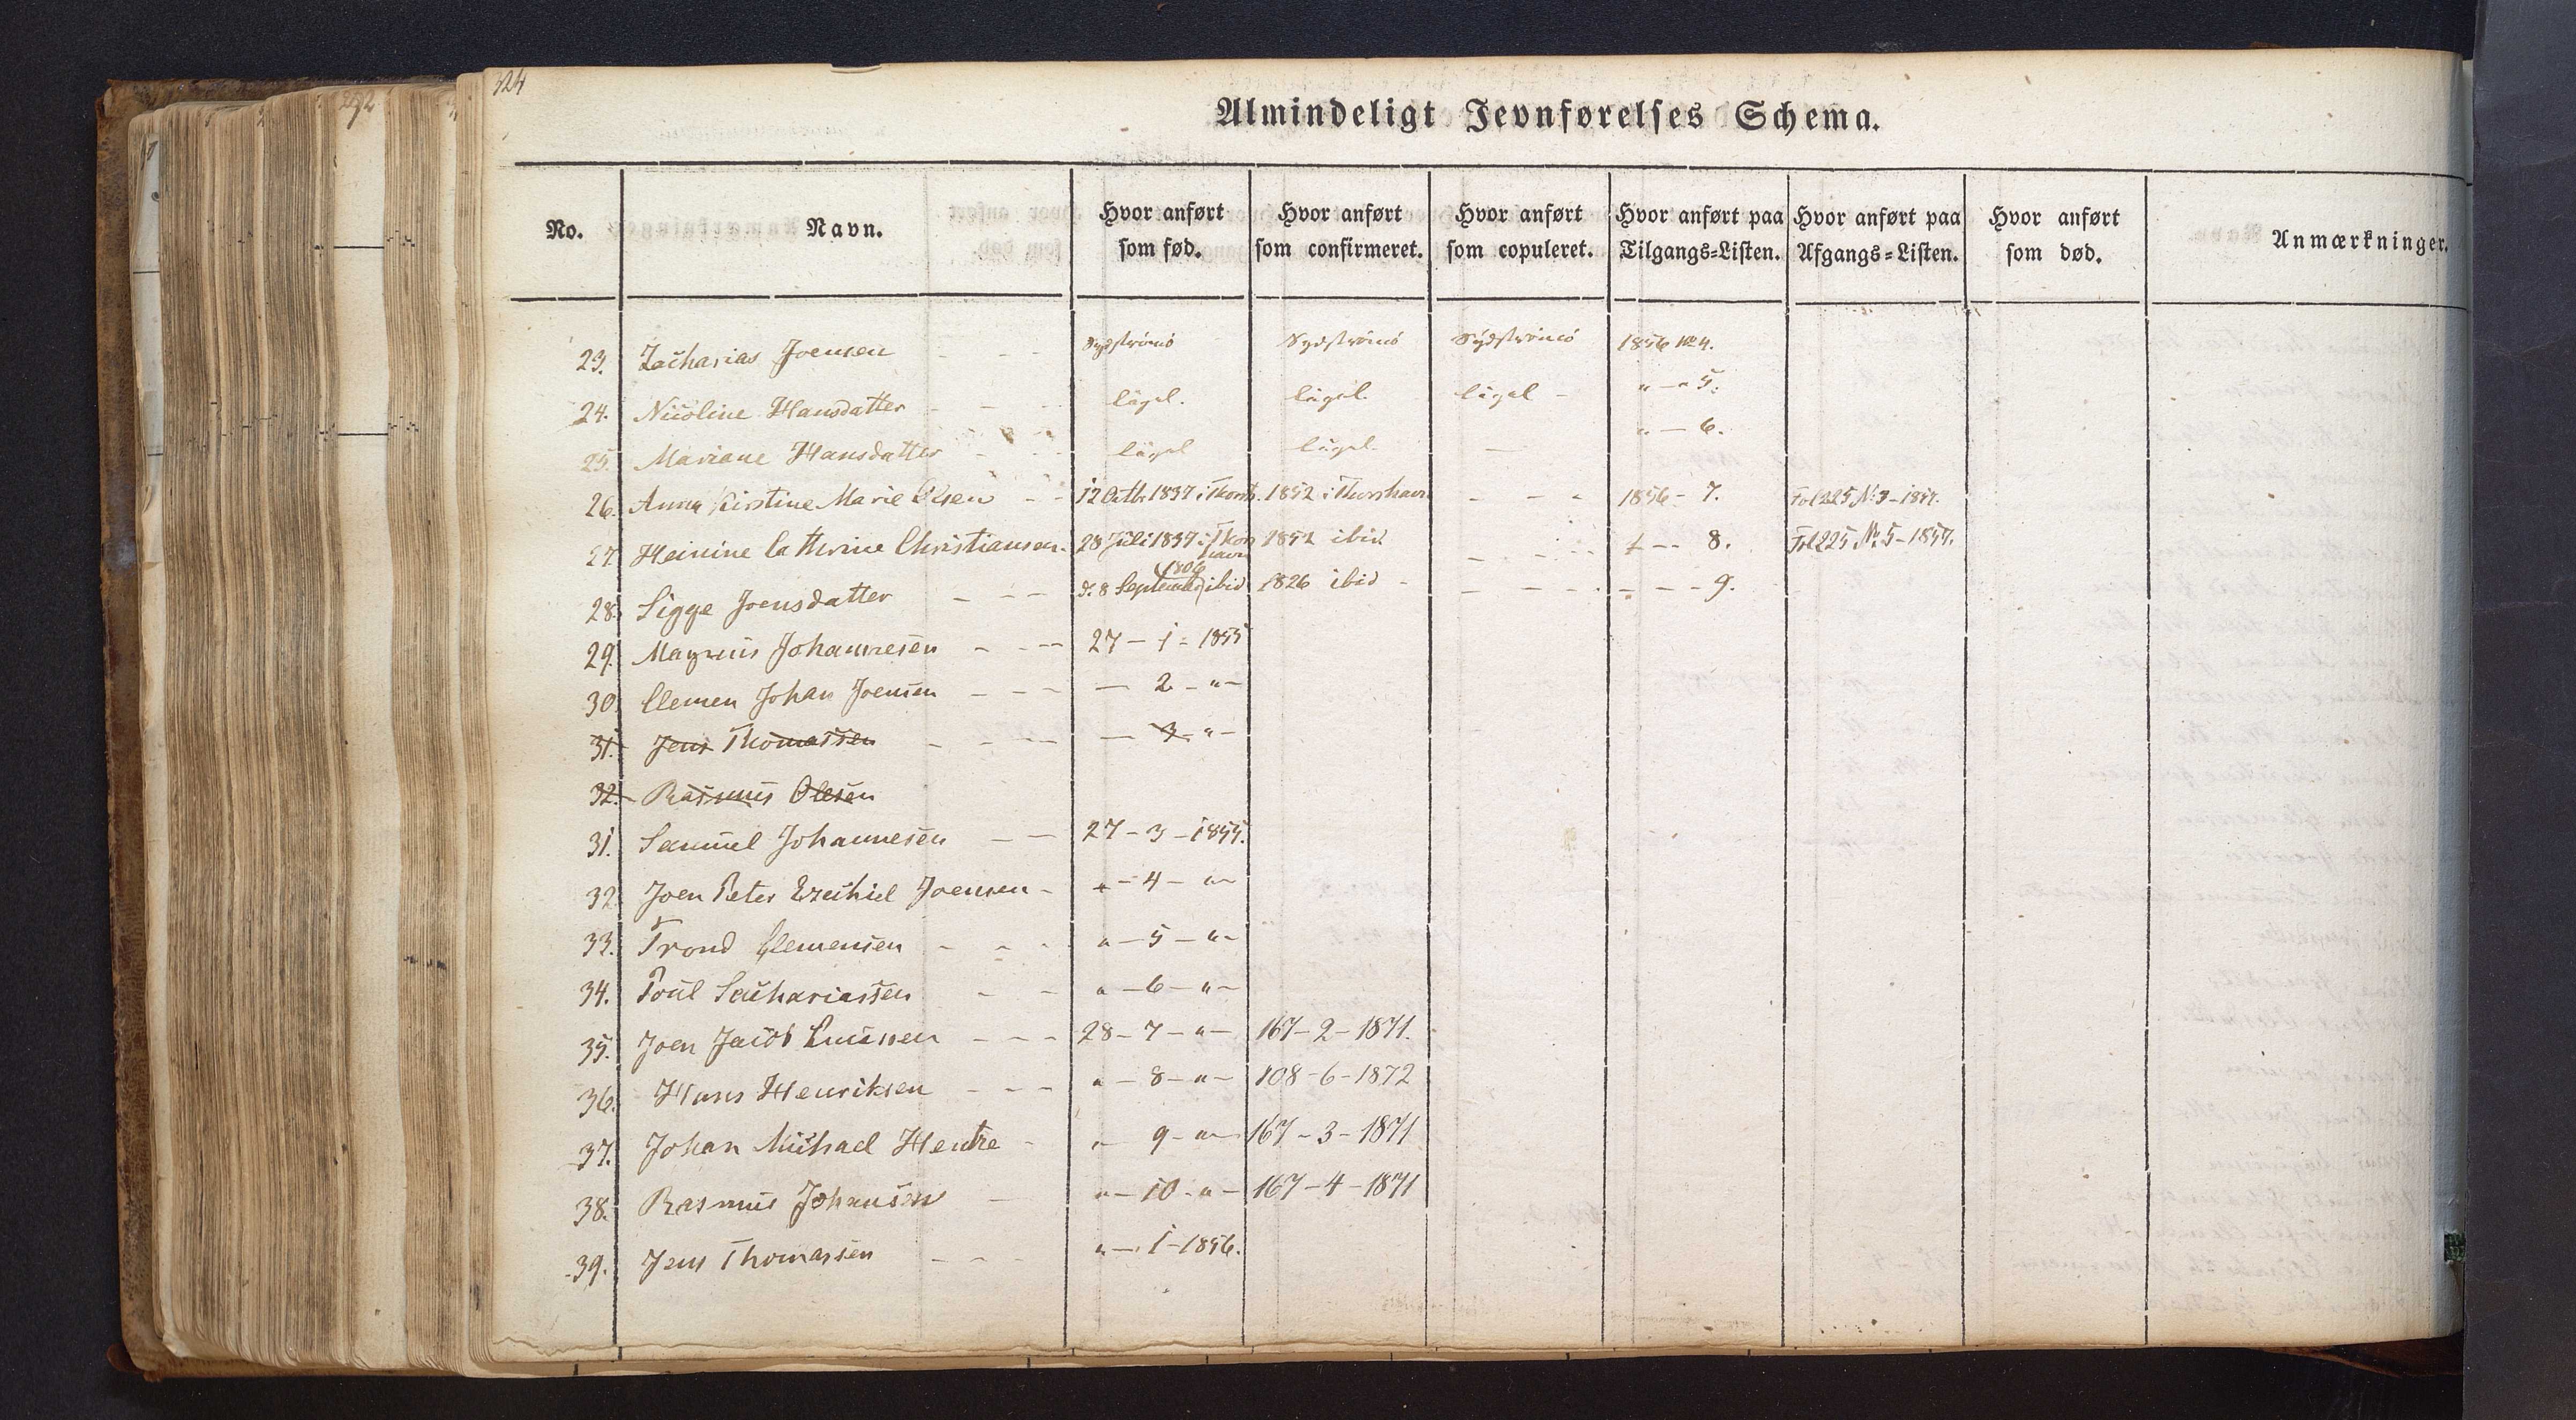 324
292
Almindeligt Jevnførelses Schema.
No. Navn. Hvor anført som fød. Hvor anført som confirmeret. Hvor anført som copuleret. Hvor anført paa Tilgangs-Listen. Hvor anført paa Afgangs-Listen. Hvor anført som død. Anmærkninger.
23. Zacharias Joensen - - - Sydströmö Sydströmö Sydströmö 1856 No 4.
24. Nicoline Hansdatter - - - ligel. ligel. ligel - " - " 5.
25. Mariane Hansdatter - - - ligel ligel. - " - 6.
26. Anna Kirstine Marie Olsen - - 12 Octb. 1837 i Thorsh. 1852 i Thorshavn - - - 1856 - 7. Fol 225 No 3 - 1857.
27. Heinine Cathrine Christiansen. 28 Juli 1837 i Thorshavn 1852 ibid - - - - - 8. Fol 225 No 5 - 1857.
28. Sigge Joensdatter - - - d. 8 September 1806 ibid 1826 ibid - - - - - - - 9.
29. Magnus Johannesen - - - 27 - 1 - 1855
30. Clemen Johan Joensen - - - - 2 - " -
31. Jens Thomassen - - - - 3 - " -
32. Rasmus Olesen
31. Samuel Johannesen - - 27 - 3 - 1855.
32. Joen Peter Ezechiel Joensen - " - 4 - " -
33. Trond Clemensen - - - " - 5 - " -
34. Poul Sachariassen - - " - 6 - " -
35. Joen Jacob - - - 28 - 7 - " - 167 - 2 - 1871.
36. Hans Henriksen - - - " - 8 - " - 108 - 6 - 1872
37. Johan Michael Hentze - " 9 - " - 167 - 3 - 1871
38. Rasmus Johansen - " - 10 - " - 167 - 4 - 1871
39. Jens Thomassen - - - " - 1 - 1856.